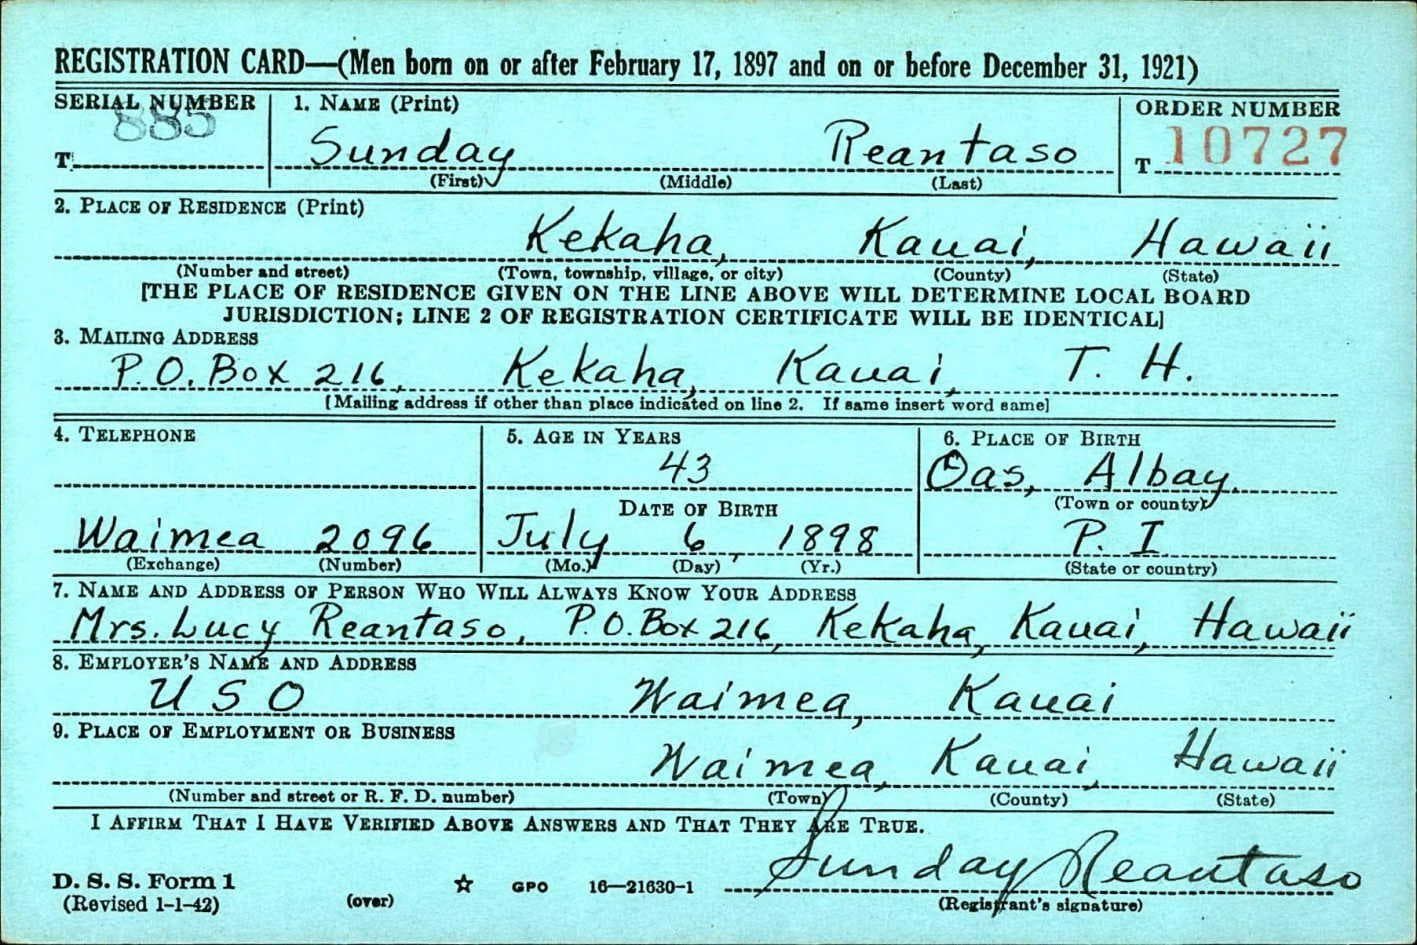 REGISTRATION CARD—(Men born on or after February 17, 1897 and on or before December 31, 1921)
SERIAL NUMBER 1. NAME (Print) ORDER NUMBER
T 885 Sunday Reantaso T 10727
(First) (Middle) (Last)
2. PLACE OF RESIDENCE (Print)
Kekaha, Kauai, Hawaii
(Number and street) (Town, township, village, or city) (County) (State)
[THE PLACE OF RESIDENCE GIVEN ON THE LINE ABOVE WILL DETERMINE LOCAL BOARD
JURISDICTION; LINE 2 OF REGISTRATION CERTIFICATE WILL BE IDENTICAL]
3. MAILING ADDRESS
P.O. Box 216, Kekaha, Kauai, T. H.
[Mailing address if other than place indicated on line 2. If same insert word same]
4. TELEPHONE 5. AGE IN YEARS 6. PLACE OF BIRTH
43 Oas, Albay.
DATE OF BIRTH (Town or county)
Waimea 2096 July 6, 1898 P. I.
(Exchange) (Number) (Mo.) (Day) (Yr.) (State or country)
7. NAME AND ADDRESS OF PERSON WHO WILL ALWAYS KNOW YOUR ADDRESS
Mrs. Lucy Reantaso, P.O. Box 216, Kekaha, Kauai, Hawaii
8. EMPLOYER'S NAME AND ADDRESS
U S O Waimea, Kauai
9. PLACE OF EMPLOYMENT OR BUSINESS
Waimea, Kauai, Hawaii
(Number and street or R. F. D. number) (Town) (County) (State)
I AFFIRM THAT I HAVE VERIFIED ABOVE ANSWERS AND THAT THEY ARE TRUE.
Sunday Reantaso
D. S. S. Form 1
(Revised 1-1-42) (over) ☆ GPO 16—21630-1 (Registrant's signature)